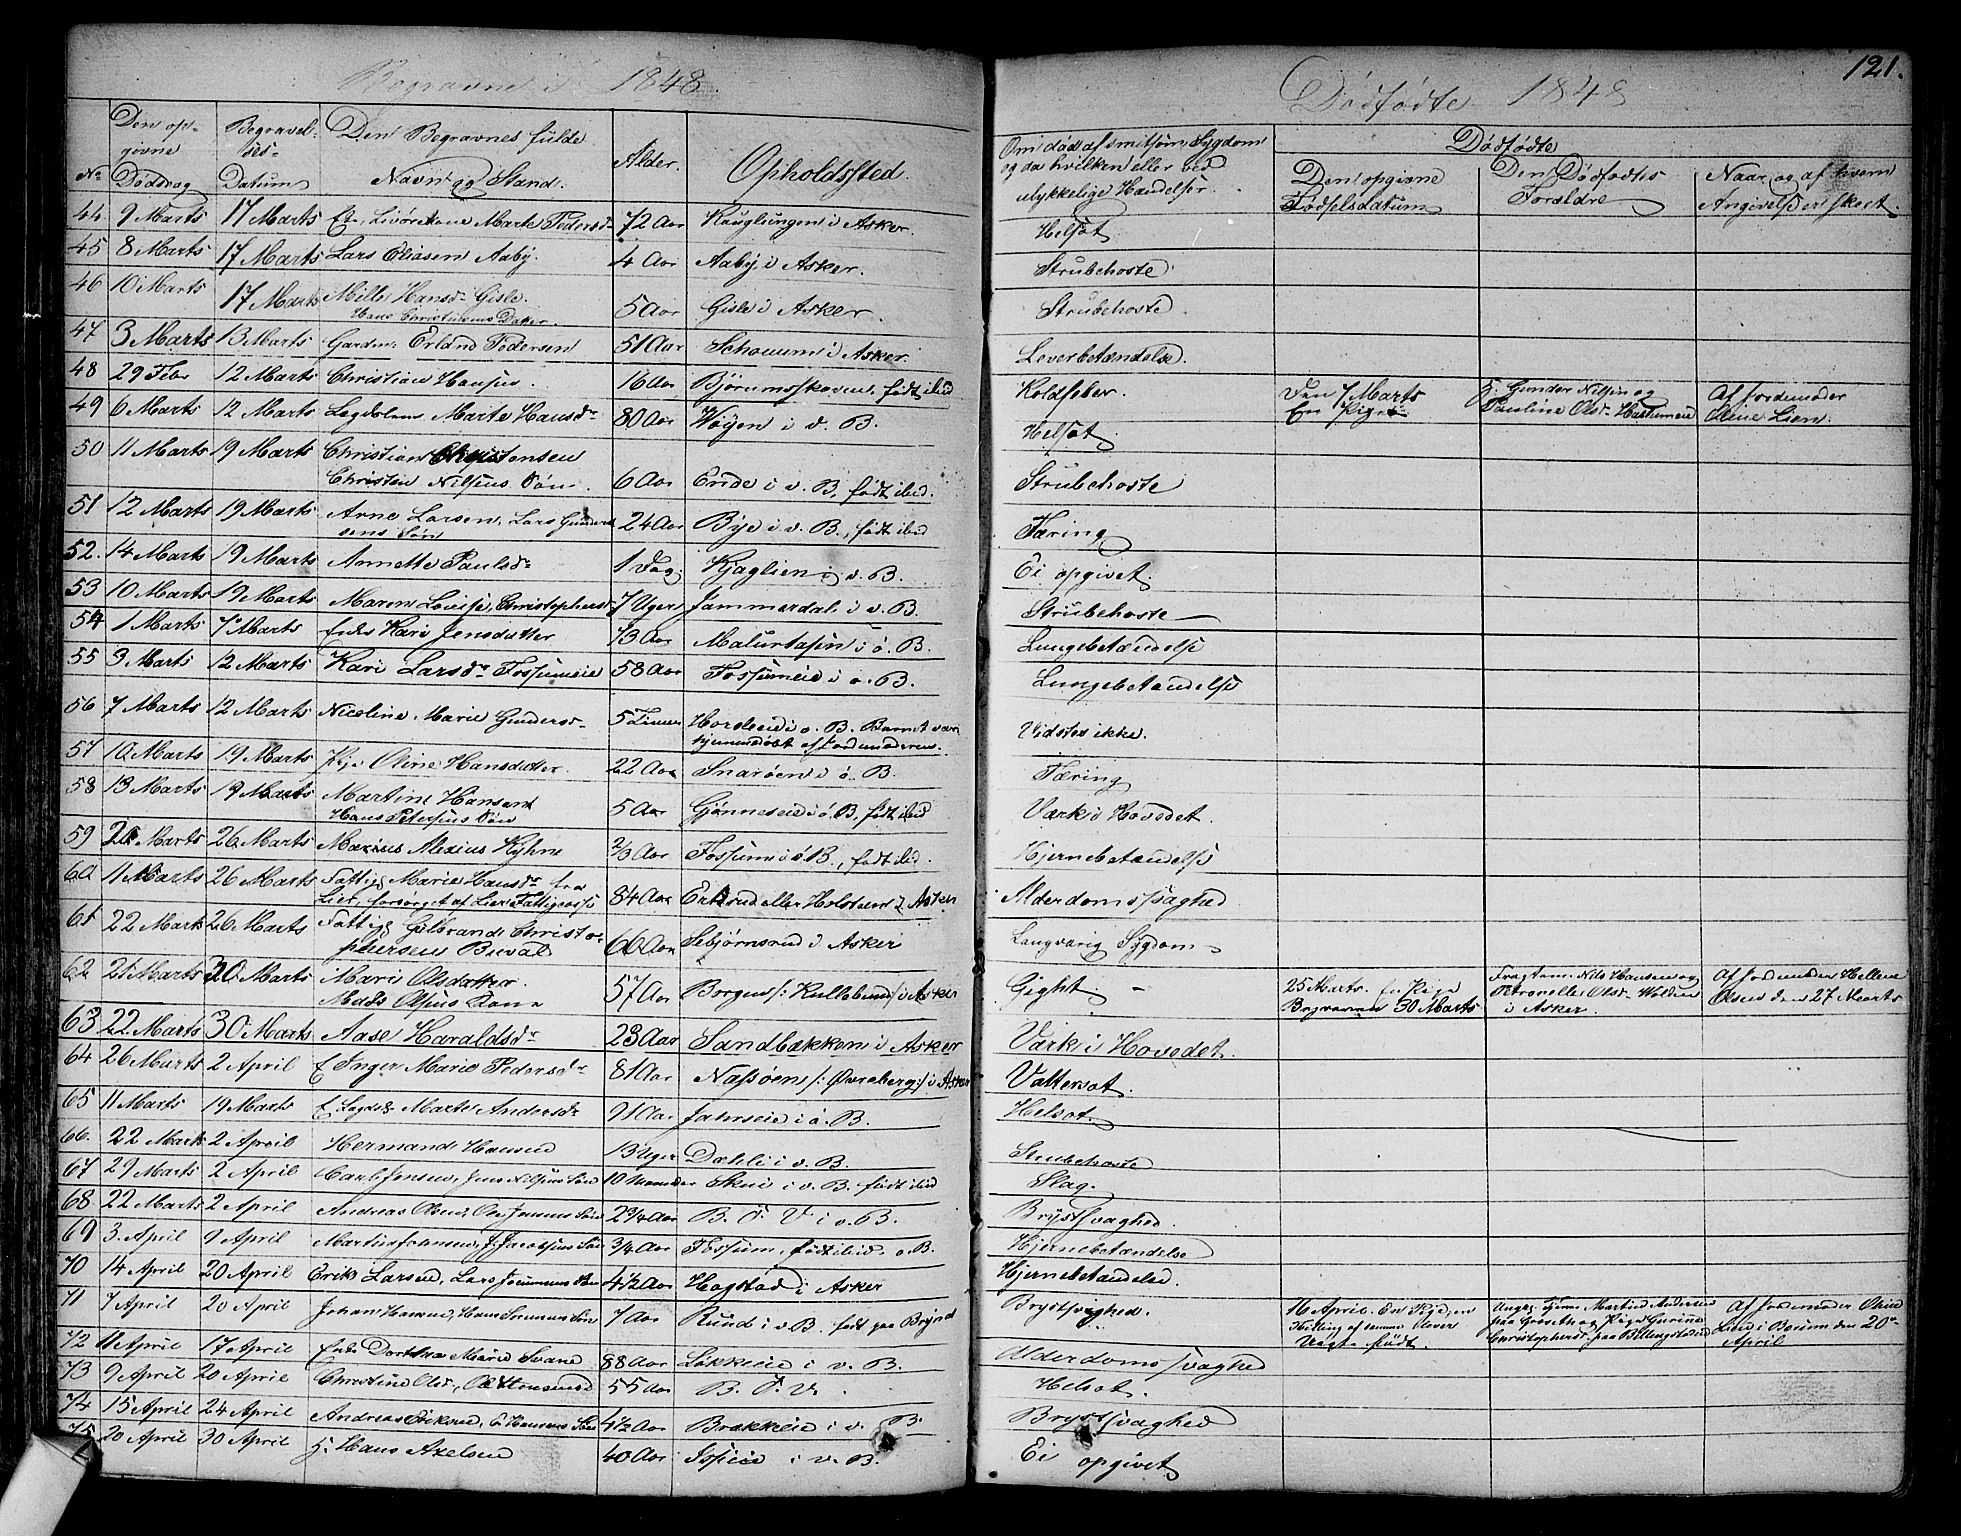 Begravne i 1848.
Den op-
givne
Dødsdag
Begravel-
ses-
Datum
Den Begravnes fulde
Navn og Stand.
Alder.
Opholdssted.
No
44. 9 Marts 17 Marts Marte Pedersd. 72 Aar i Asker.
45 8 Marts 17 Marts Lars Eliasen Aaby. 4 Aar Aaby i Asker.
46 10 Marts 17 Marts Mille Hansd. Gisle.
Hans Christensens Datter. 5 Aar Gisle i Asker.
47 3 Marts 13 Marts Gardm. Erland Pedersen 51 Aar i Asker.
48 29 Febr 12 Marts Christian Hansen. 16 Aar Bjørumsskoven, født ibid
49 6 Marts 12 Marts Marte Hansdr 80 Aar Wøyen i v. B.
50 11 Marts 19 Marts Christian Christensen
Christen Nilsens Søn. 6 Aar Eride i v. B, født ibid.
51 12 Marts 19 Marts Arne Larsen, Lars Gunder
sens Søn 24 Aar Bye i v. B., født ibid
52. 14 Marts 19 Marts Annette Paulsdr 1 Dag. Kjaglien i v. B.
53 10 Marts 19 Marts Maren Lovise, Christophersd. 7 Uger Jammerdal i v. B.
54 1 Marts 7 Marts Enke Kari Jensdatter 73 Aar i ø. B.
55 3 Marts 12 Marts Kari Larsdr Fossumeie 58 Aar Fossumeie i ø. B.
56 7 Marts 12 Marts Nicoline Marie Gundersdr 5 Timer i ø. B. Barnet var
hjemmedøbt af Jordmoderen.
57 10 Marts 19 Marts Pige Oline Hansdatter. 22 Aar Snarøen i ø. B.
58 13 Marts 19 Marts Martin Hansen
Hans Petersens Søn 5 Aar Gjønneseie i ø. B, født ibid
59 20 Marts 26 Marts Marius Alexius Kyhne 2/3 Aar Fossum i ø. B., født ibid.
60 11 Marts 26 Marts Fattig Marie Hansdr fra
Lier, forsørget af Lier Fattigcasse 84 Aar eller Holstad i Asker
61 22 Marts 26 Marts Fattig Gulbrand Christo-
phersen 60 Aar Sebjørnsrud i Asker
62 21 Marts 30 Marts Mari Olsdatter.
Mads Olsens Kone 57 Aar Borgen i Asker
63 22 Marts 30 Marts Aase Haraldsdr 23 Aar Sandbækken i Asker
64 26 Marts 2 April E. Inger Marie Pedersdr 81 Aar Næsøen /: Øvreberg :/ i Asker
65 11 Marts 19 Marts E. Marte Andersdr 91 Aar Jahrseie i ø. B.
66. 22 Marts 2 April Hermand Hansen 13 Uger Dæhli i v. B.
67 29 Marts 2 April Carl Jensen, Jens Nilsens Søn 10 Maaneder Skui i v. B. født ibid
68 22 Marts 2 April Andreas Olsen, Ole Jensens Søn 2 3/4 Aar B. F. V i v. B.
69 3. April 9 April Martin Johnsen, Søn 3/4 Aar Fossum, født ibid. ø. B.
70 14 April 20 April Erik Larsen, Lars Søn 4 1/2 Aar Hogstad i Asker
71 7 April 20 April Johan Hansen, Hans Søn 7 Aar Rud i v. B. født paa Brynd
72 11 April 17 April Enke Dorthea Marie Svane 88 Aar Løkkeie i v. B.
73 9 April 20 April Christine Olsd, 55 Aar B. F. V.
74 15 April 24 April Andreas Eriksen, E. Hansens Søn 4 1/2 Aar Brækkeie i v. B
75 20 April 30 April Hans Axelsen 40 Aar i v. B.
121.
Dødfødte 1848
Om død af smitsom Sygdom
og da hvilken eller ved
ulykkelige Hændelser.
Dødfødte
Den opgivne
Fødselsdatum
Den Dødfødtes
Forældre
Naar og af hvem
Angivelse er skeet.
Helsot
Strubehoste
Strubehoste
Leverbetændelse.
Koldfeber. Den 7 Marts
En Pige Gunder Nilsen og
Pauline Olsdr Af Jordemoder
Olene Lien.
Helsot.
Strubehoste
Tæring
Ei opgivet.
Strubehoste
Lungebetændelse
Lungebetændelse
Vidstes ikke.
Tæring
Værk i Hovedet.
Hjernebetændelse
Alderdomssvaghed
Langvarig Sygdom
Gight. 25 Marts. En Pige
Begraven 30 Marts Nils Hansen og
Petronelle Olsdr
i Asker. Af Jordemoder Hellene
Olsen den 27 Marts
Værk i Hovedet.
Vattersot.
Helsot.
Strubehoste
Slag.
Brystsvaghed.
Hjernebetændelse
Hjernebetændelse.
Brystsvaghed. 16 April. En Pige, en
Tvilling af samme Moder
født. Ungk. Tjener Martin Andersen
paa og Pige Gurine
Christophersd. paa Billingstad Af Jordemoder Oline
Lien i Bærum den 20de
April
Alderdomssvaghed
Helsot.
Brystsvaghed
Ei opgivet